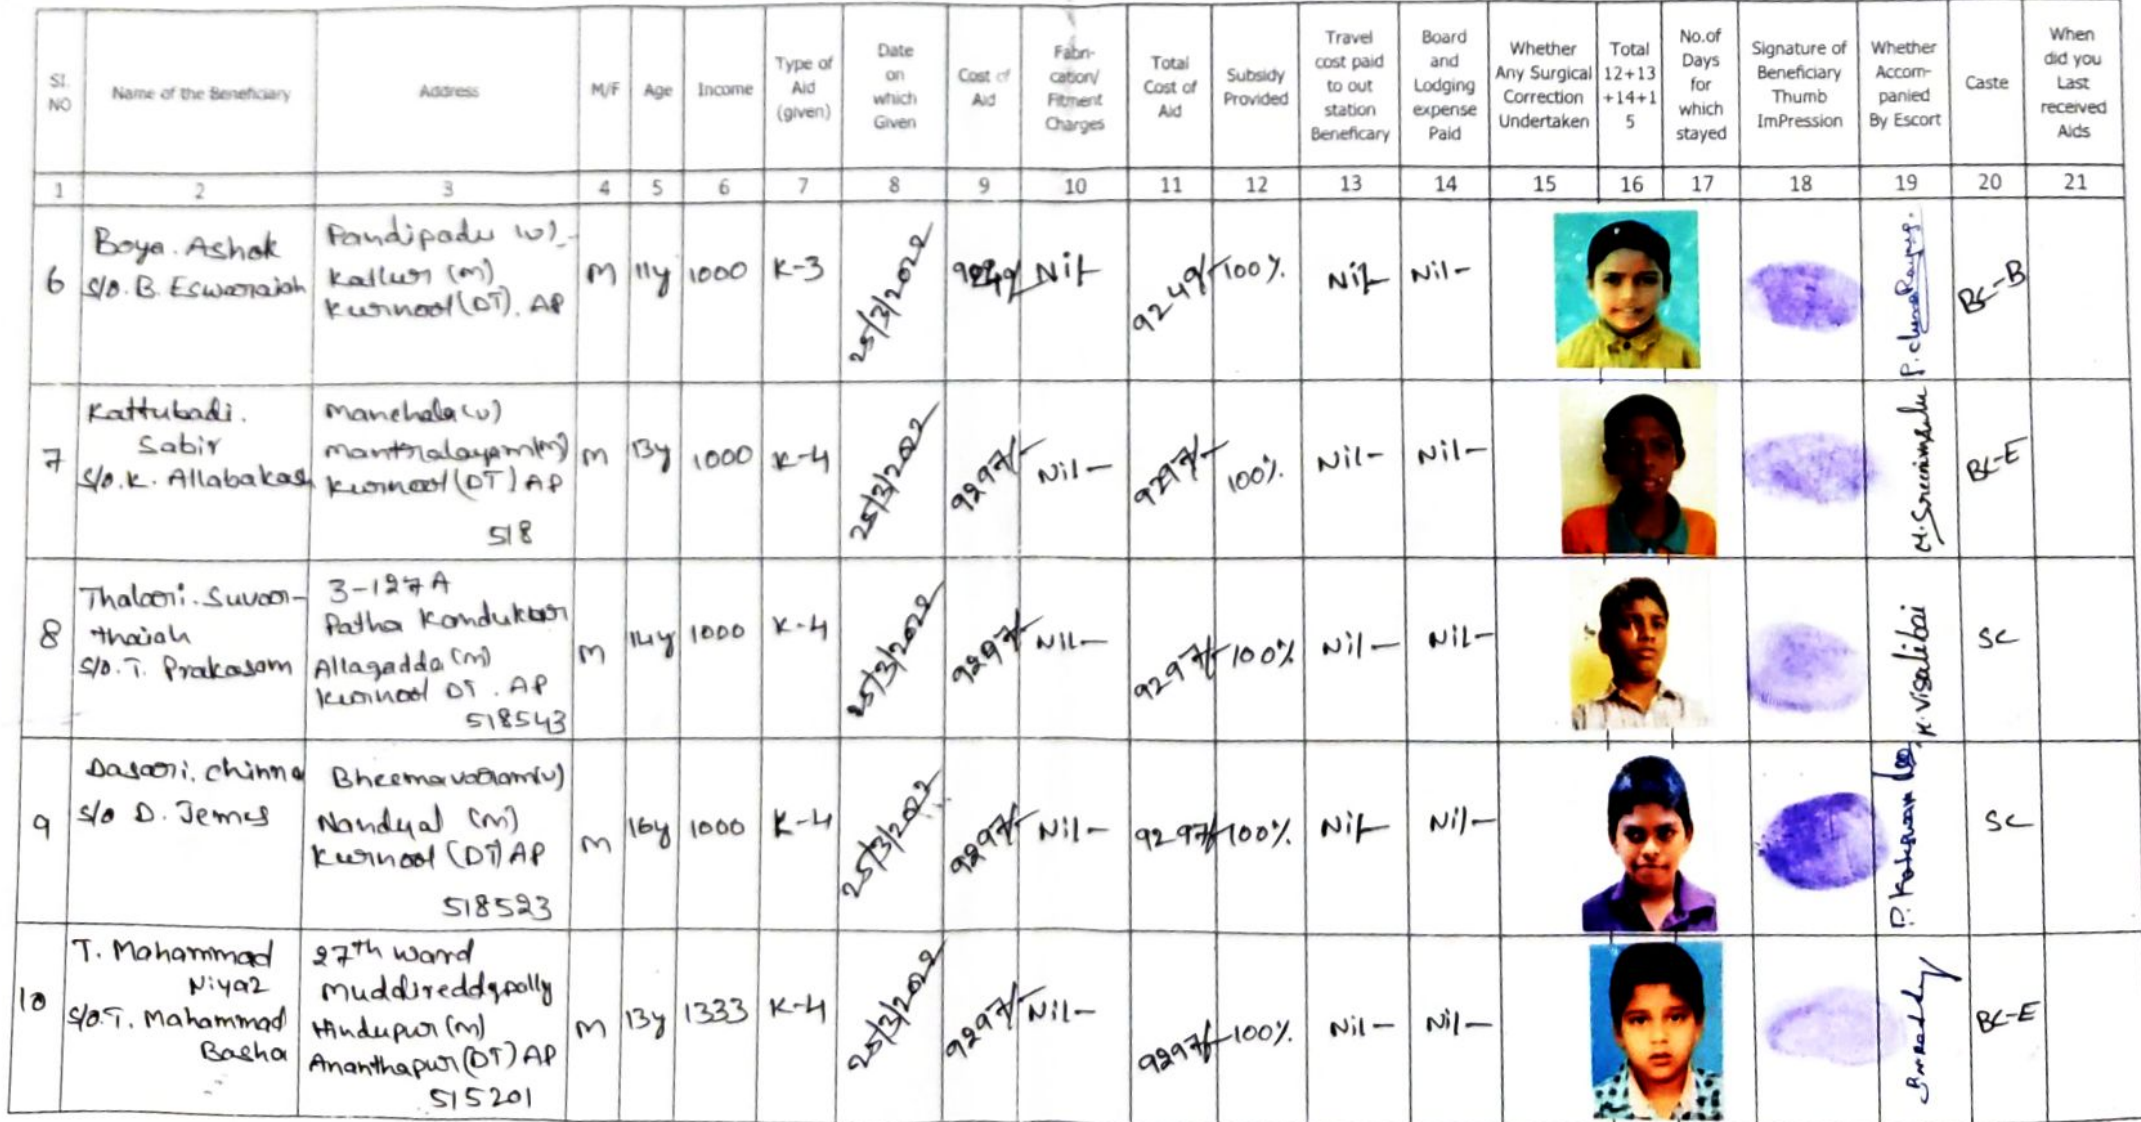 Sl. NO
Name of the Beneficiary
Address
M/F
Age
Income
Type of Aid (given)
Date on which Given
Cost of Aid
Fabri-cation/ Fitment Charges
Total Cost of Aid
Subsidy Provided
Travel cost paid to out station Beneficary
Board and Lodging expense Paid
Whether Any Surgical Correction Undertaken
Total 12+13 +14+1 5
No.of Days for which stayed
Signature of Beneficiary Thumb ImPression
Whether Accom-panied By Escort
Caste
When did you Last received Aids
1 2 3 4 5 6 7 8 9 10 11 12 13 14 15 16 17 18 19 20 21
6
Boya. Ashok
S/o. B. Eswaraiah
Pandipadu (v)
Kallur (m)
Kurnool (DT). AP
M 11y 1000 K-3 25/3/2022 9249/- Nil- 9249/- 100% Nil- Nil- BC-B
7
Kattubadi.
Sabir
S/o. K. Allabakas
Manchala (v)
Manthralayam (m)
Kurnool (DT) AP
518
M 13y 1000 K-4 25/3/2022 9297/- Nil- 9297/- 100% Nil- Nil- M. Sreenivasulu BC-E
8
Thalari. Suvar-
thaiah
S/o. T. Prakasam
3-127A
Patha Kandukur
Allagadda (m)
Kurnool DT. AP
518543
M 14y 1000 K-4 25/3/2022 9297/- Nil- 9297/- 100% Nil- Nil- K. Visalibai SC
9
Dasari. Chinna
S/o D. Jemes
Bheemavaram (v)
Nandyal (m)
Kurnool (DT) AP
518523
M 16y 1000 K-4 25/3/2022 9297/- Nil- 9297/- 100% Nil- Nil- SC
10
T. Mahammad
Niyaz
S/o. T. Mahammad
Basha
27th ward
Muddireddypally
Hindupur (m)
Ananthapur (DT) AP
515201
M 13y 1333 K-4 25/3/2022 9297/- Nil- 9297/- 100% Nil- Nil- BC-E